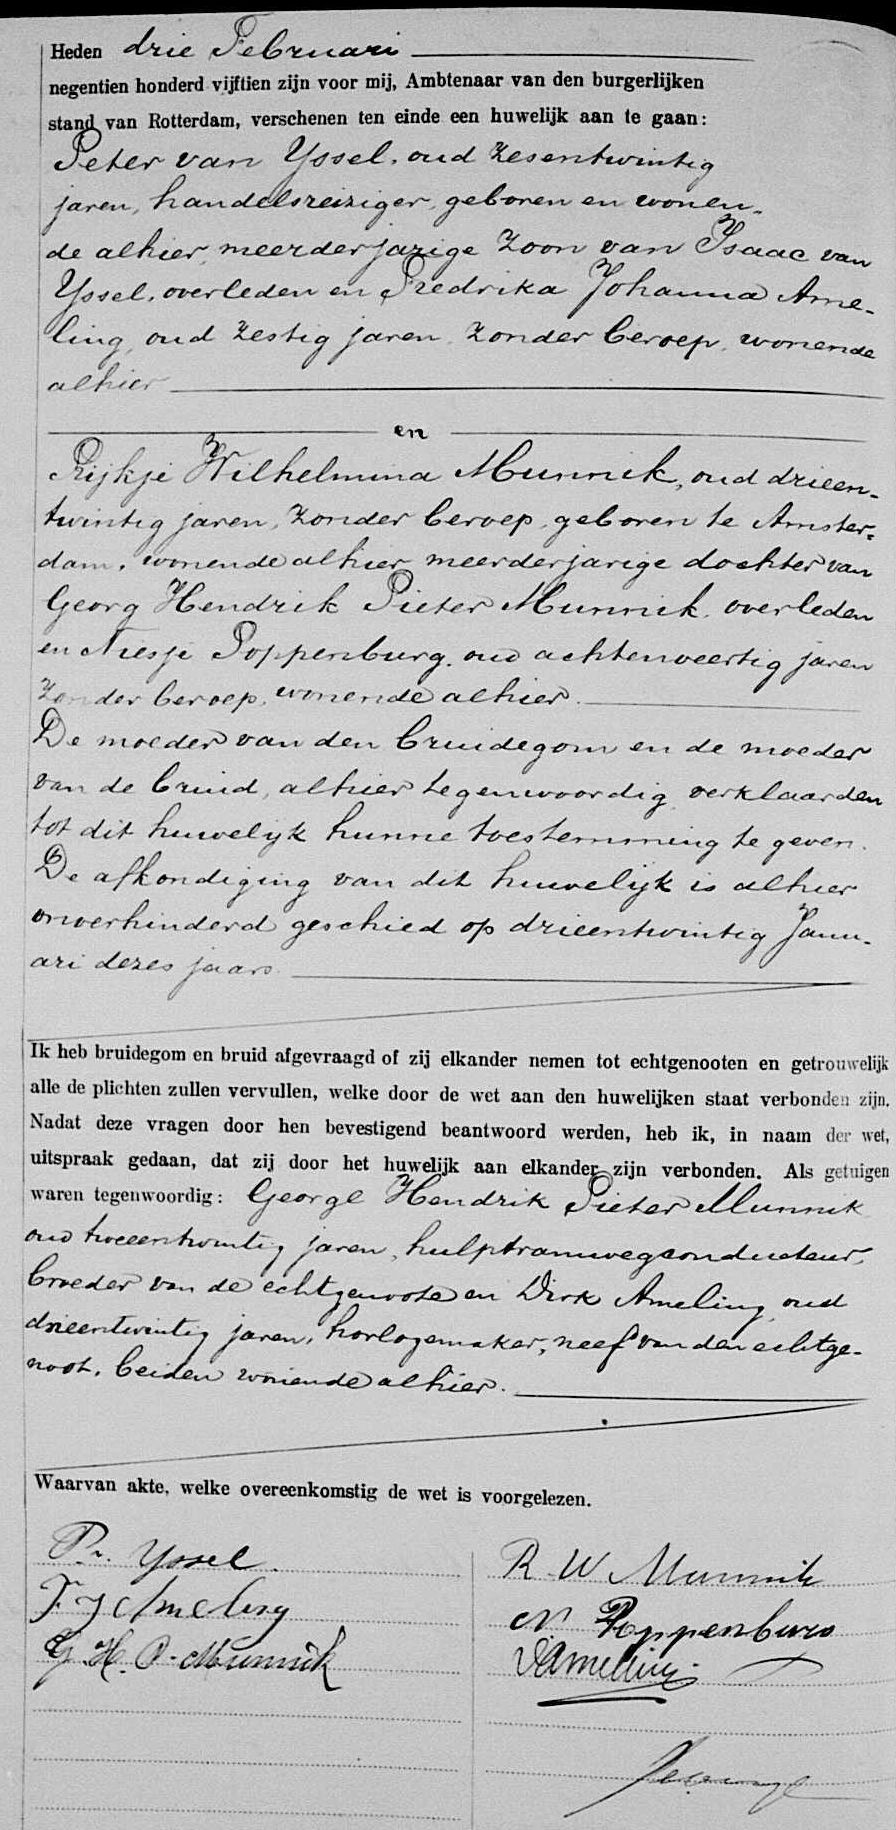 Heden drie Februari
negentien honderd vijftien zijn voor mij, Ambtenaar van den burgerlijken
stand van Rotterdam, verschenen ten einde een huwelijk aan te gaan:
Peter van Yssel, oud zesentwintig
jaren, handelsreiziger, geboren en wonen-
de alhier, meerderjarige zoon van Isaac van
Yssel, overleden en Fredrika Johanna Ame-
ling, oud zestig jaren, zonder beroep, wonende
alhier
en
Rijkje Wilhelmina Munnik, oud drieen-
twintig jaren, zonder beroep, geboren te Amster-
dam, wonende alhier, meerderjarige dochter van
Georg Hendrik Pieter Munnik, overleden
en Niesje Poppenburg, oud achtenveertig jaren
zonder beroep, wonende alhier.
De moeder van den bruidegom en de moeder
van de bruid, alhier tegenwoordig, verklaarden
tot dit huwelijk hunne toestemming te geven.
De afkondiging van dit huwelijk is alhier
onverhinderd geschied op drieentwintig Janu-
ari dezes jaars.
Ik heb bruidegom en bruid afgevraagd of zij elkander nemen tot echtgenooten en getrouwelijk
alle de plichten zullen vervullen, welke door de wet aan den huwelijken staat verbonden zijn.
Nadat deze vragen door hen bevestigend beantwoord werden, heb ik, in naam der wet,
uitspraak gedaan, dat zij door het huwelijk aan elkander zijn verbonden. Als getuigen
waren tegenwoordig: George Hendrik Pieter Munnik
oud tweeentwintig jaren, hulptramwegconducteur,
broeder van de echtgenoote en Dirk Ameling, oud
drieentwintig jaren, horlogemaker, neef van den echtge-
noot, beiden wonende alhier.
Waarvan akte, welke overeenkomstig de wet is voorgelezen.
P. v. Yssel.
R W Munnik
F J Ameling
N Poppenburg
G. H. P. Munnik
D Ameling